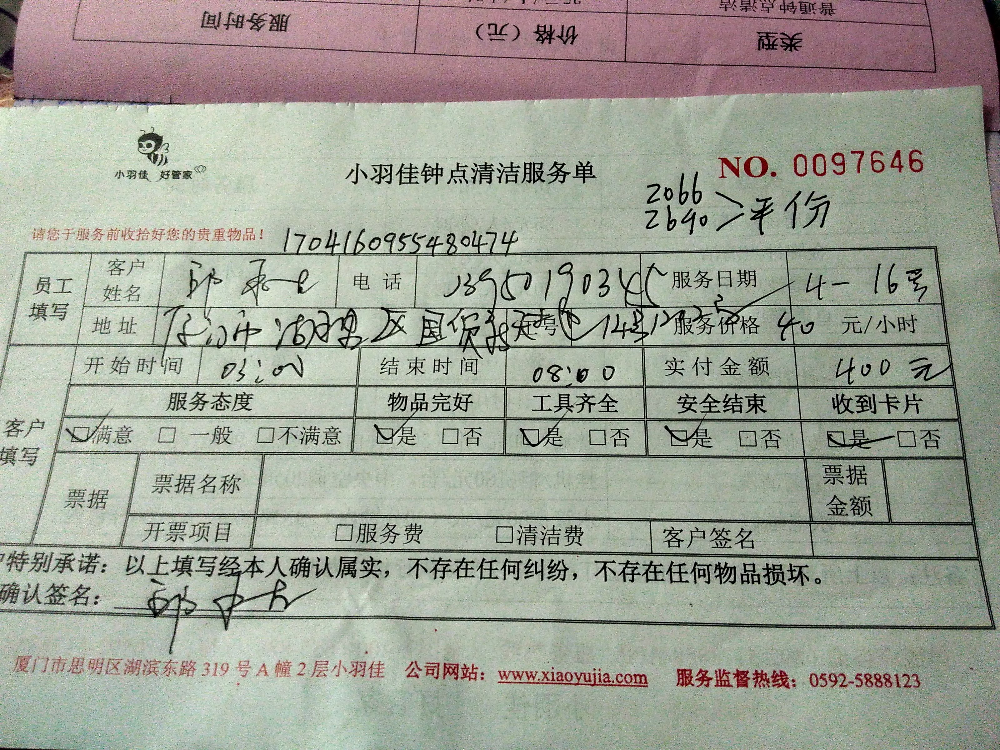 服务时间 价格（元） 类型
普通钟点清洁
小羽佳 好管家
小羽佳钟点清洁服务单
NO. 0097646
2066
2690 平份
请您于服务前收拾好您的贵重物品！
1704160955480474
员工填写
客户姓名 邱
电话 13950190345
服务日期 4-16号
地址 厦门市湖里区国贸 14号
服务价格 40 元/小时
客户填写
开始时间 03:00 结束时间 08:00 实付金额 400元
服务态度 物品完好 工具齐全 安全结束 收到卡片
☑满意 □一般 □不满意 ☑是 □否 ☑是 □否 ☑是 □否 ☑是 □否
票据 票据名称 票据金额
开票项目 □服务费 □清洁费 客户签名
户特别承诺：以上填写经本人确认属实，不存在任何纠纷，不存在任何物品损坏。
确认签名： 邱
厦门市思明区湖滨东路 319 号 A 幢 2 层小羽佳 公司网站：www.xiaoyujia.com 服务监督热线：0592-5888123